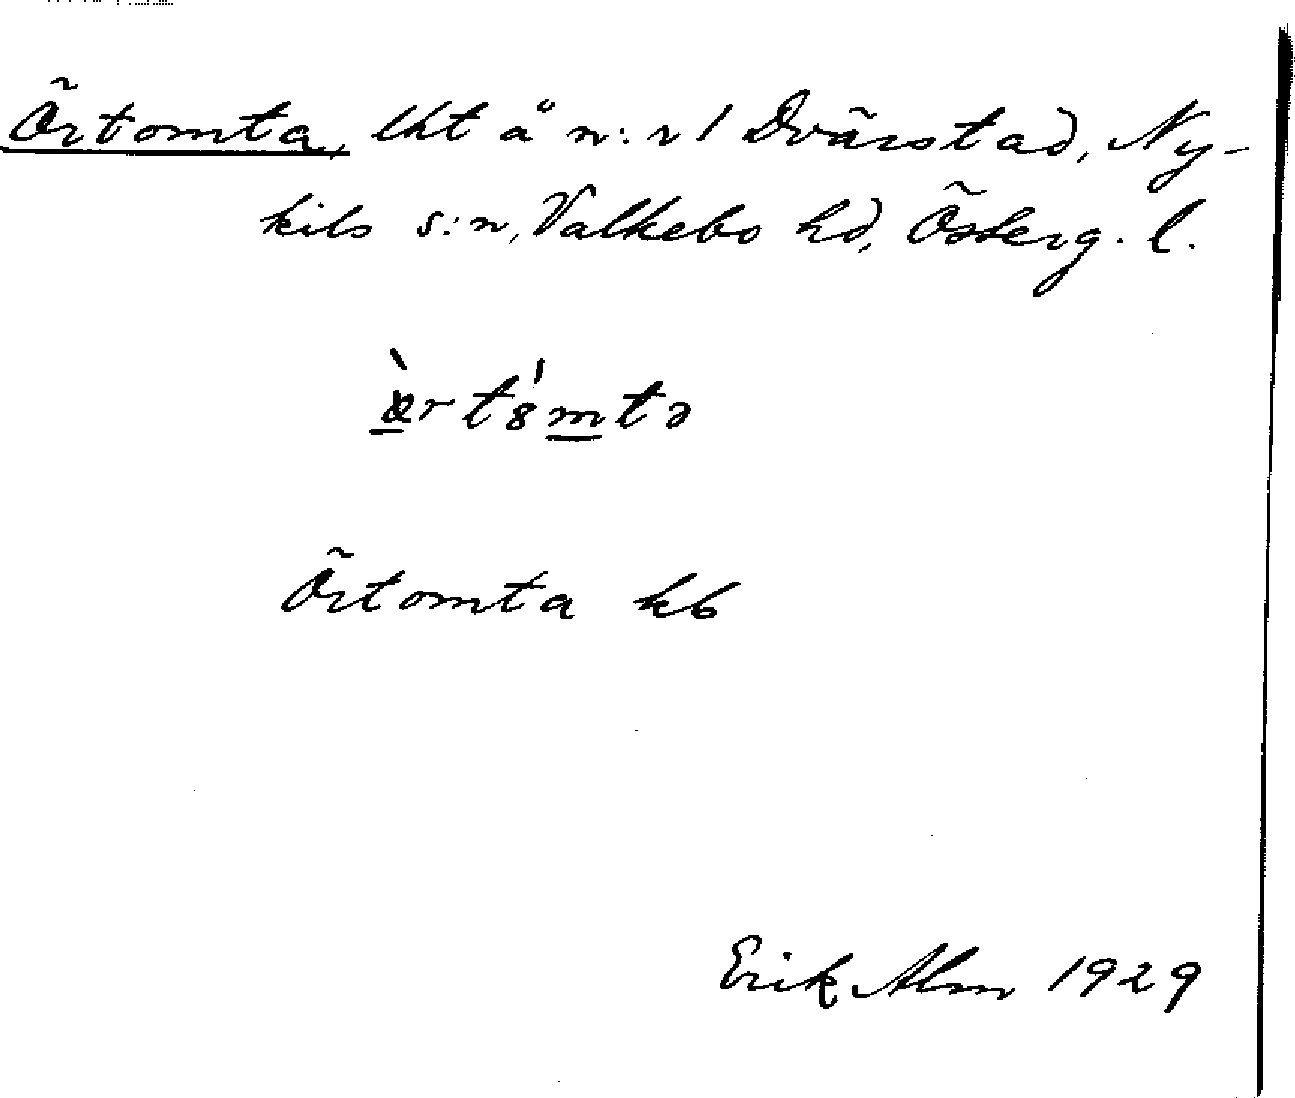 Örtomta, lht å n:r 1 Dvärstad, Ny-
kils s:n, Valkebo hd, Österg. l.
Örtomta kb
Erik Alm 1929